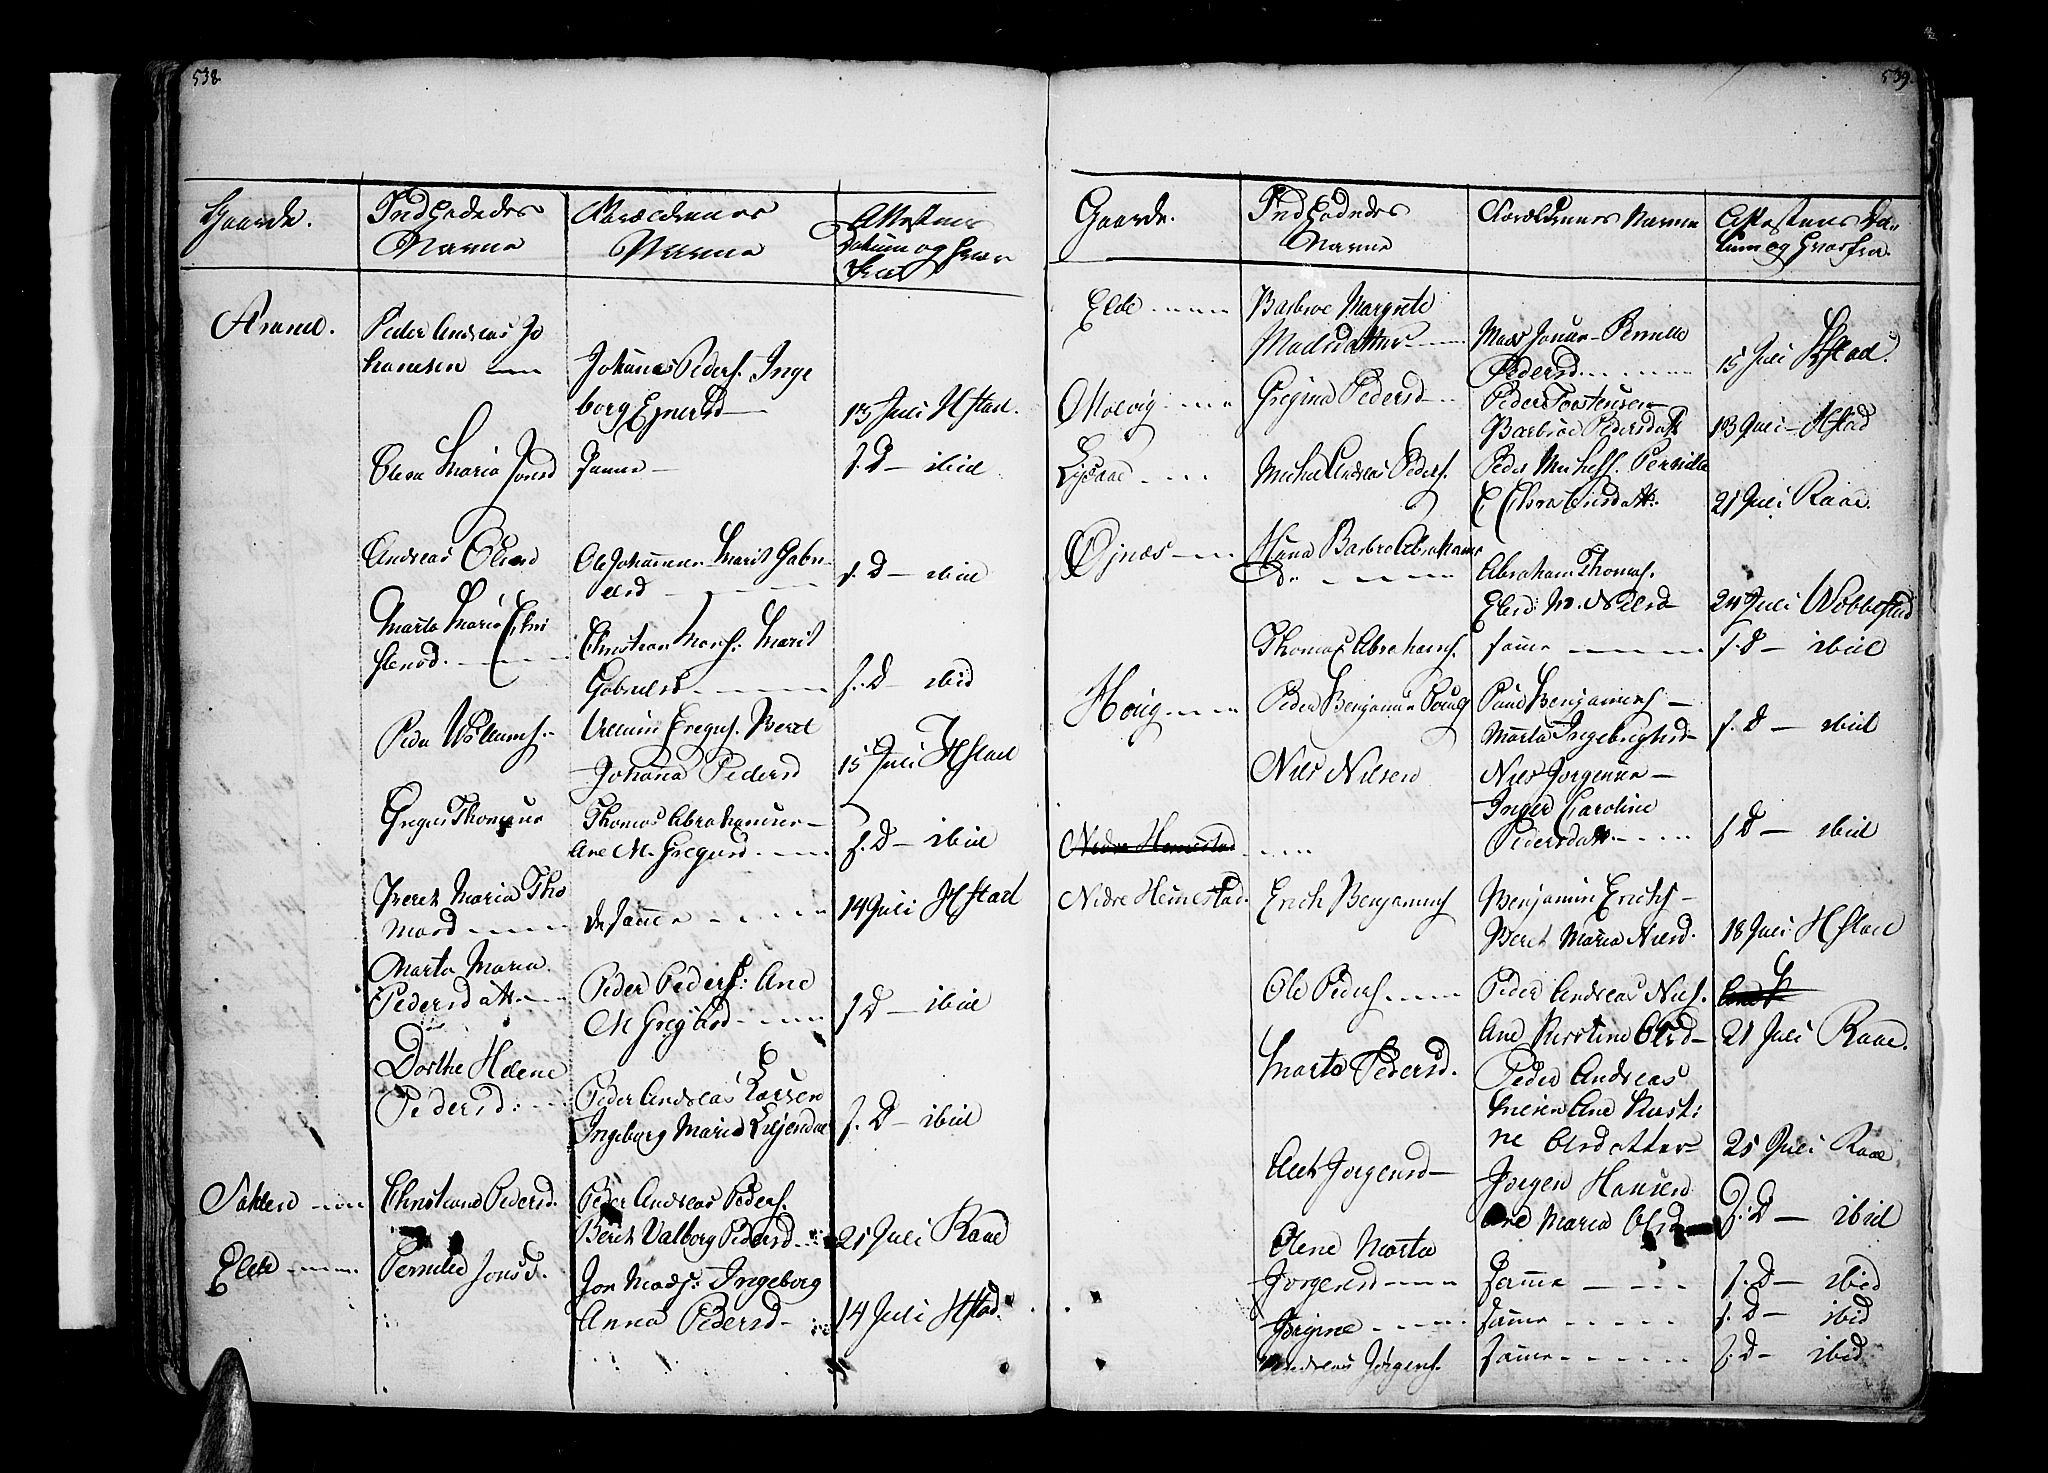 538.
Gaarde.
Indpodedes
Navne
Forældrenes
Navne
Attestens
Datum og hvor
fra
Aranes.
Peder Andreas Jo
hannesen
Johanes Peders. Inge
borg Ejnersd
13 Juli Hstad.
Elen Maria Jonsd
Samme
s. D ibid
Andreas Olsen
Ole Johannesen Marit Gabri
elsd
s. D ibid
Marta Maria Chri
stensd.
Christian Mons. Marit
Gabrielsd
s. D ibid
Peder Willums.
Villum Gregus. Beret
Johana Pedersd
15 Juli Hstad
Gregus Thomesen
Thomas Abrahamsen
Ane M. Gregusd
s. D ibid
Beret Maria Tho
masd
de samme
14 Juli Hstad
Marta Maria
Pedersdatt.
Peder Peders: Ane
M. Gregusd
s. D ibid
Dorthe Helene
Pedersd:
Peder Andreas Larsen
Ingeborg Maria Liljendal
s. D ibid
Christiane Pedersd.
Peder Andreas Peders.
Beret Valborg Pedersd
21 Juli Raae
Elde
Pernille Jonsd.
Jon Mads: Ingeborg
Anna Pedersd
14 Juli Hstad.
539.
Gaarde.
Indpodedes
Navne
Forældrenes Navne
Attestens Da-
tum og hvorfra.
Elde
Barbroe Margrete
Madsdatter
Mads Jonsen Pernille
Pedersd.
15 Juli Hstad.
Molvig
Gregina Pedersd
Peder Torstensen
Barbroe Pedersdatt
13 Juli Hstad
Lysaae
Michel Andreas Peders.
Peder Michels. Pernille
E. Christensdatt.
21 Juli Raae.
Øjnæs
Hana Barbro Abrahams
D.
Abraham Thomas.
Elen M. Nilsd
24 Juli Webbestad
Thomas Abrahams.
samme
s. D ibid
Houg
Peder Benjamin Pouls
Paul Benjamins
Marta Ingebrigtsd
s. D ibid
Nils Nilsen
Nils Jørgensen
Inger Caroline
Pedersdatt.
s. D ibid
Nedre Hemestad
Nedre Hemestad.
Erich Benjamins
Benjamin Erichs
Beret Maria Nilsd.
18 Juli Hstad
Ole Peders
Peder Andreas Niels.
Ane Kirstine Olsd
21 Juli Raae.
Marta Pedersd.
Peder Andreas
Nielsen Ane Kirsti
ne Olsdatter
25 Juli Raae
Alet Jørgensd
Jørgen Hansen
Ane Maria Olsd
s. D ibid
Olene Marta
Jørgensd
samme
s. D ibid
Jørgine
samme
s. D ibid
Andreas Jørgens.
samme
s. D ibid